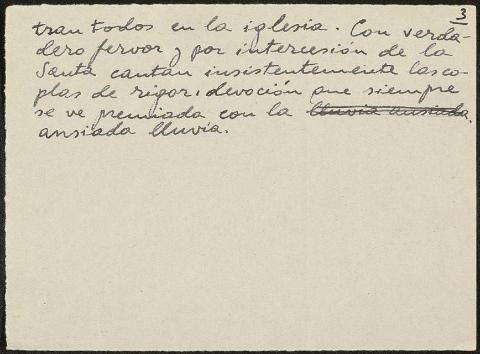 3
tran todos en la iglesia. Con verda-
dero fervor y por intercesión de la
Santa cantan insistentemente las co-
plas de rigor, devoción que siempre
se ve premiada con la lluvia ansiada.
ansiada lluvia.